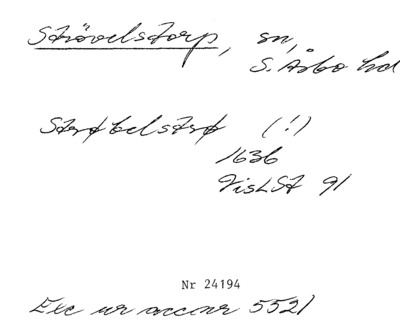 Strövelstorp, sn,
S. Åsbo hd
Strøbelstrø (!)
1636
VisLST 91
Nr 24194
Exc ur accnr 5521